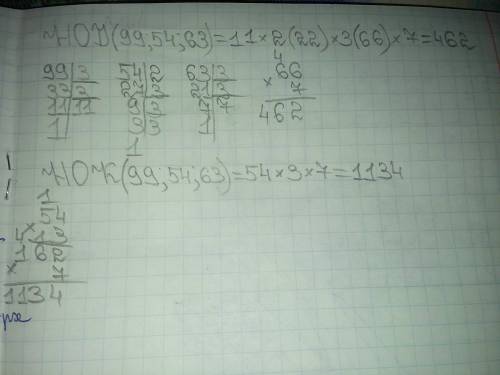 НОД(99;54;63)=11×2(22)×3(66)×7=462
99|3 54|2 63|3 66
33|3 27|3 21|3 × 7
11|11 9|3 7|7 462
1 3|3 1
1
НОК(99;54;63)=54×3×7=1134
54
× 3
162
× 7
1134